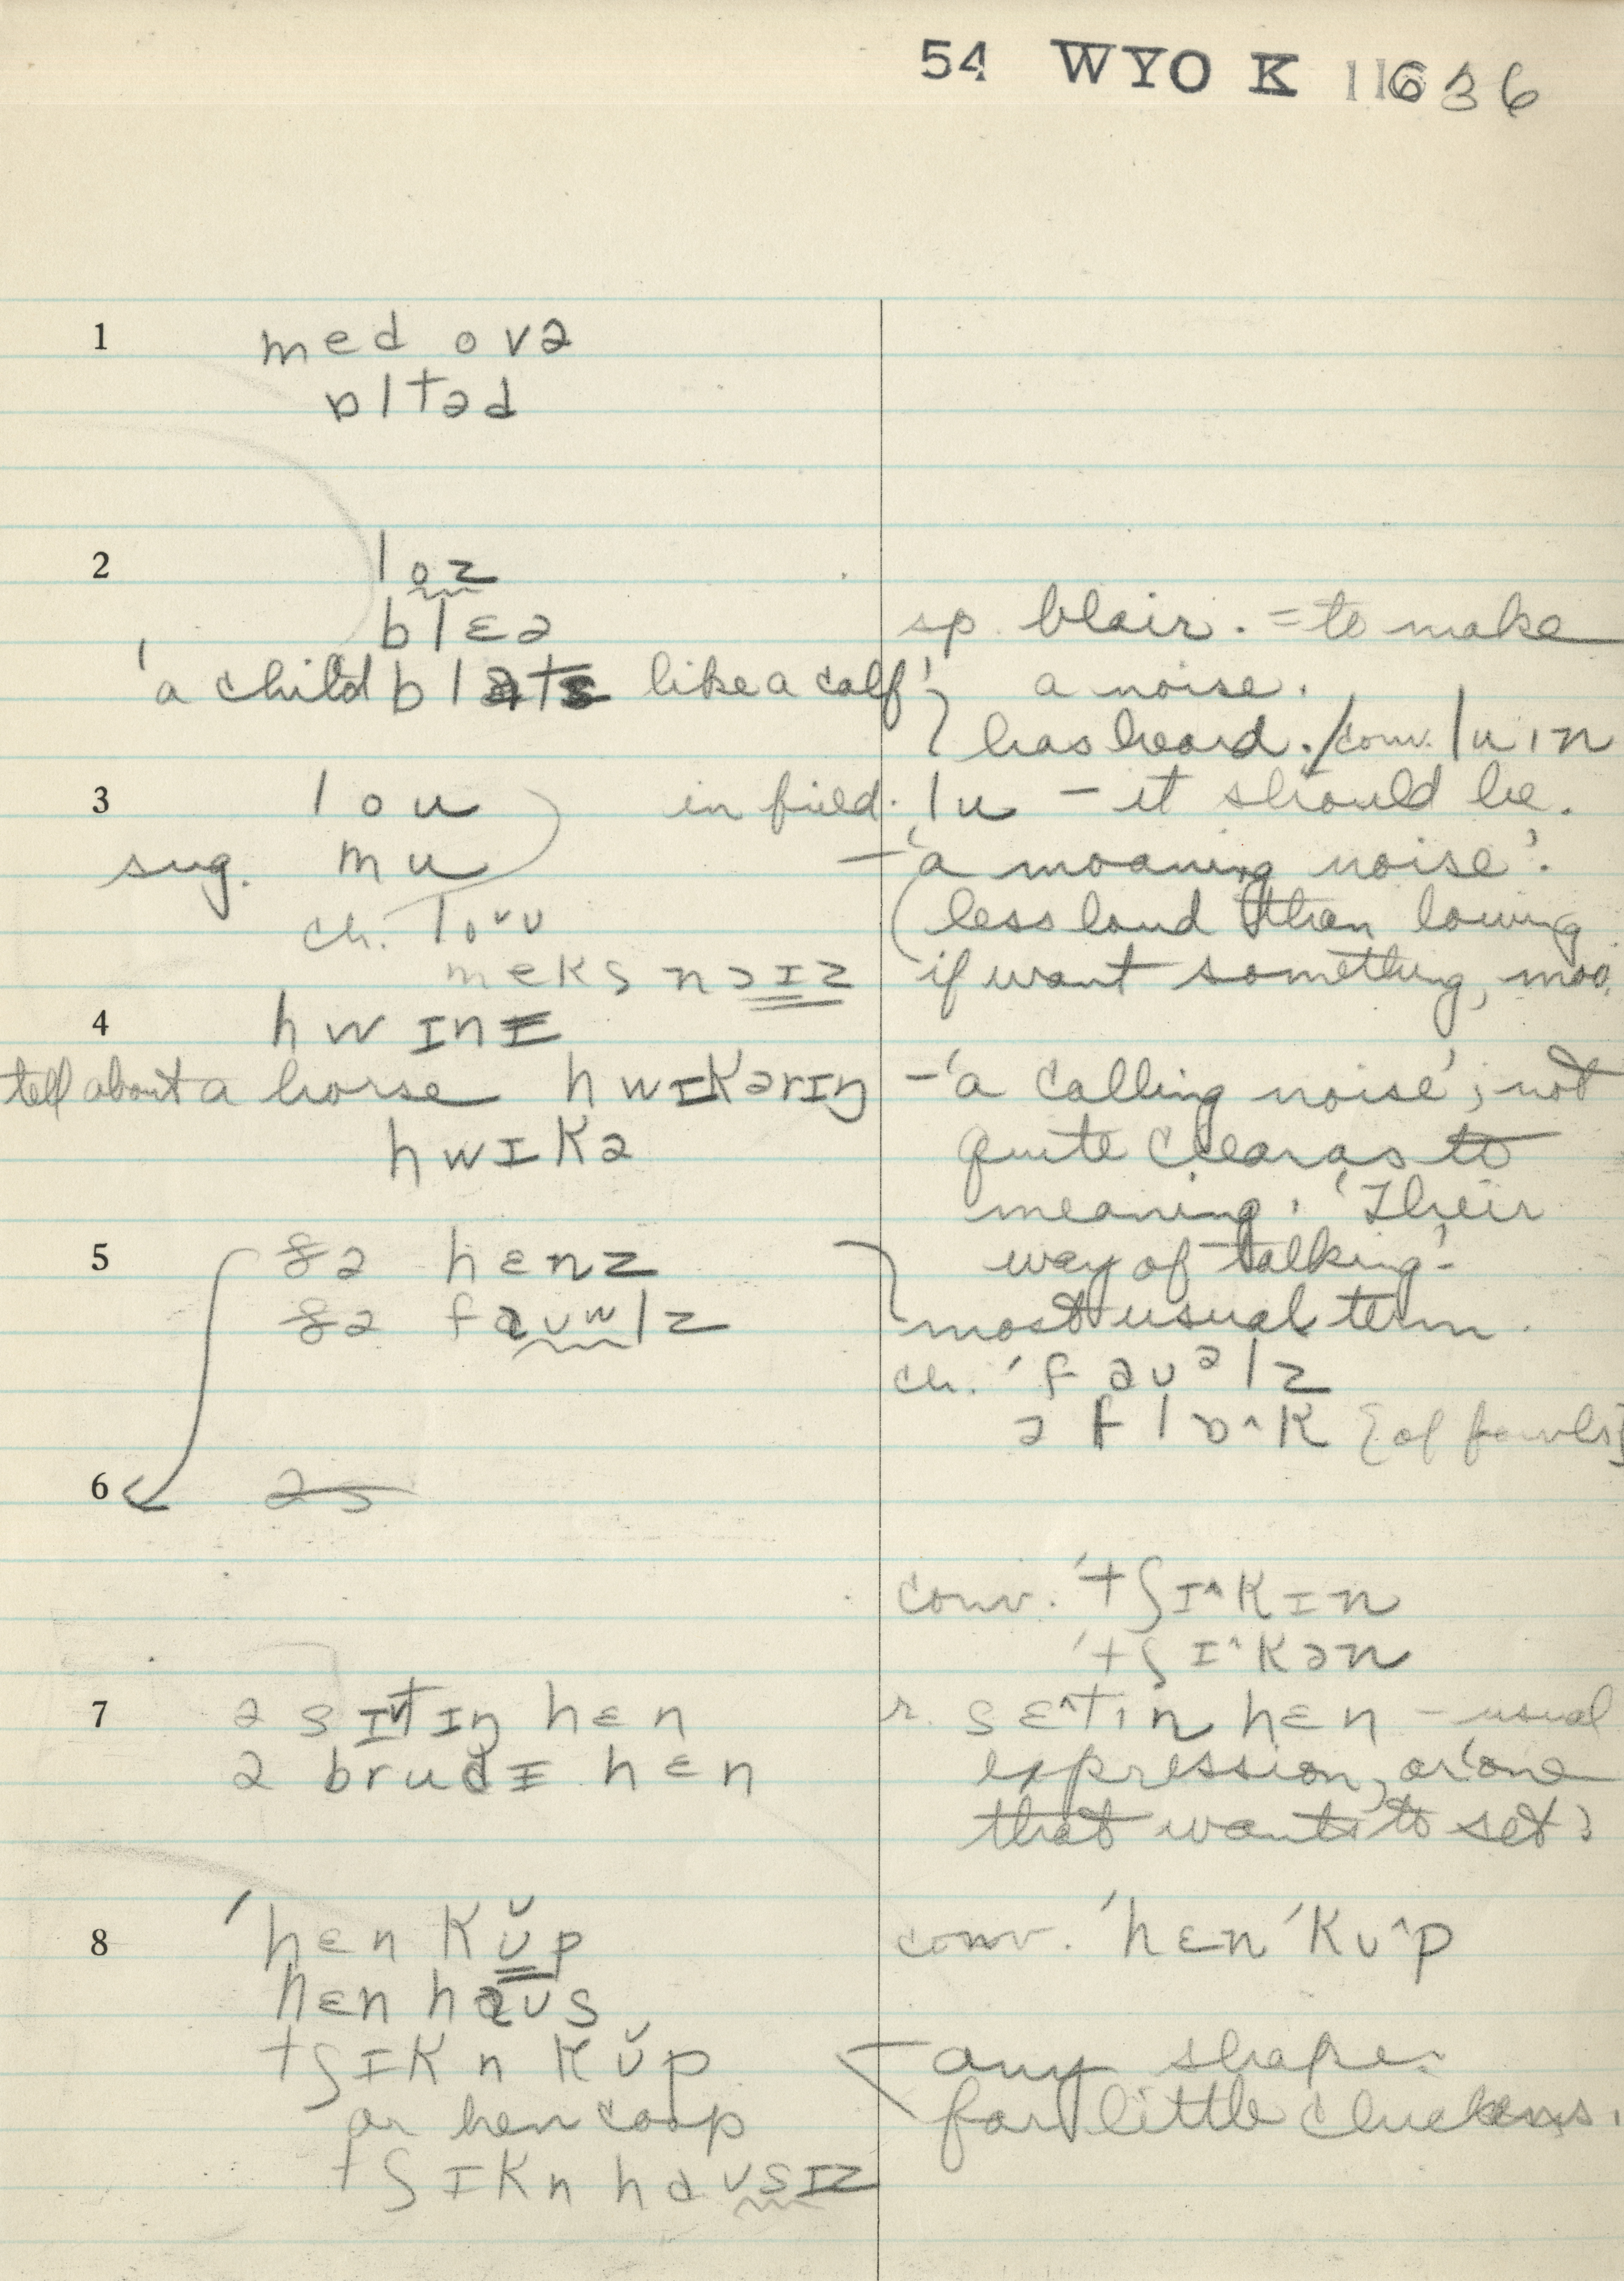 54 WYO K 11636
1 med ovə
ɒltəd
2 loz
blɛə sp. blair. = to make
'a child blats like a calf' a noise.
has heard. / conv. luin
3 lou in field. lu – it should be.
sug. mu – 'a moaning noise'.
ch. loᵛʋ less loud than lowing
meks nɔɪz if want something, moo.
4 hwɪnɪ
tell about a horse hwɪkərɪŋ – 'a calling noise'; not
hwɪkə quite clear as to
meaning. 'Their
5 ðə hɛnz way of talking'.
ðə faʊʷlz most usual term.
ch. 'faʊᵊlz
ə flɒ^k [of fowls]
6 əs
conv. 'tʃɪ^kɪn
'tʃɪ^kən
7 ə sɪtɪŋ hɛn r. sɛ^tin hɛn – usual
ə brudɪ hɛn expression, or 'one
that wants to set'
8 'hɛn kŭp conv. 'hɛn 'kʊ^p
hɛn haʊs
tʃɪkn kŭp any shape.
or hen coop for little chickens.
tʃɪkn haʊsɪz